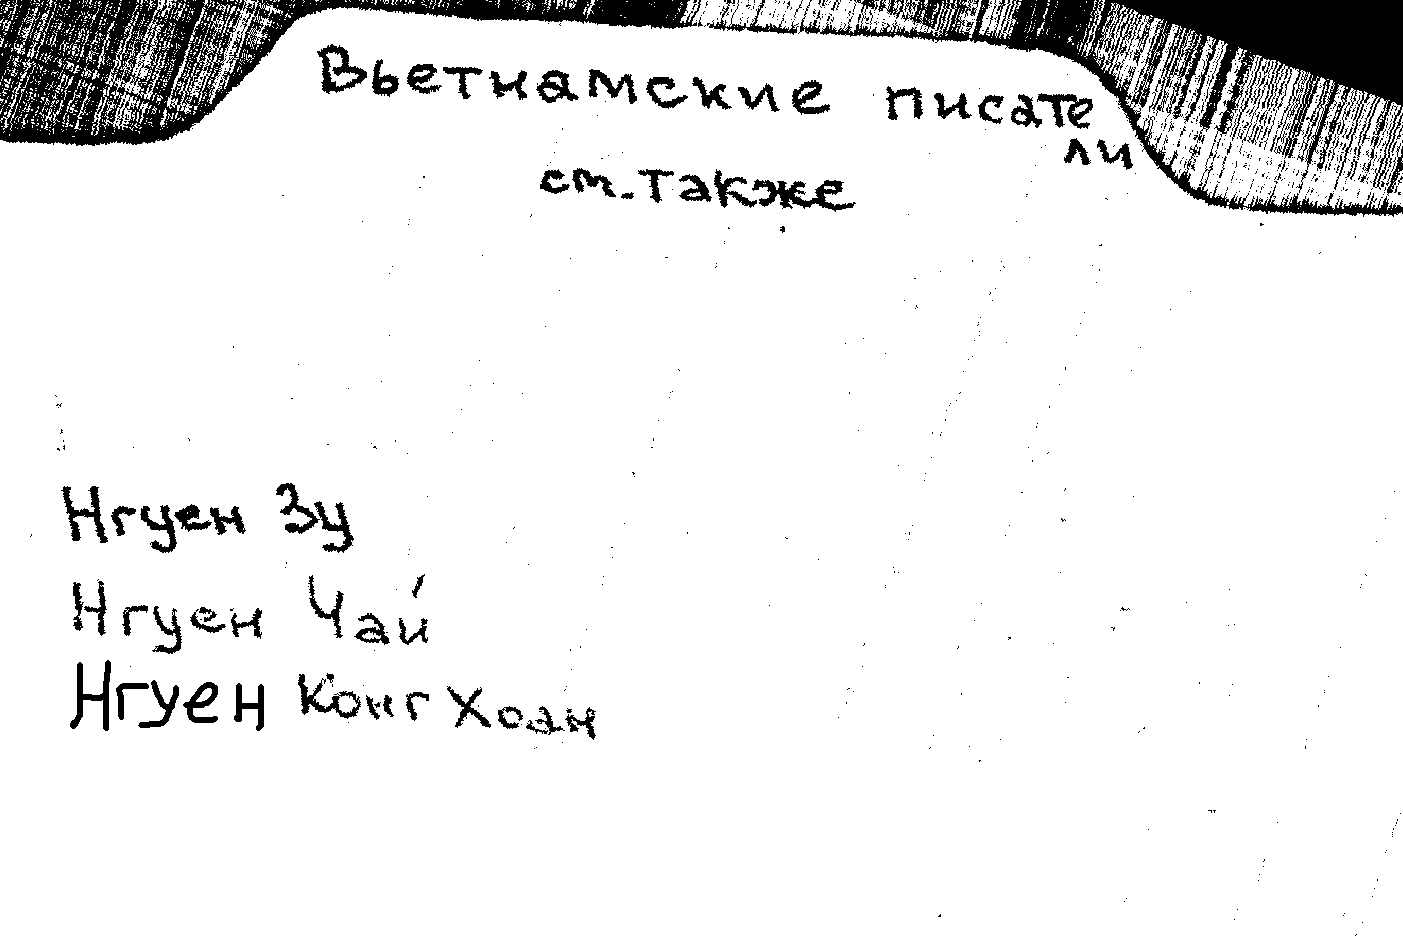 Вьетнамские писате
ли
см. также
Нгуен Зу
Нгуен Чай
Нгуен Конг Хоан